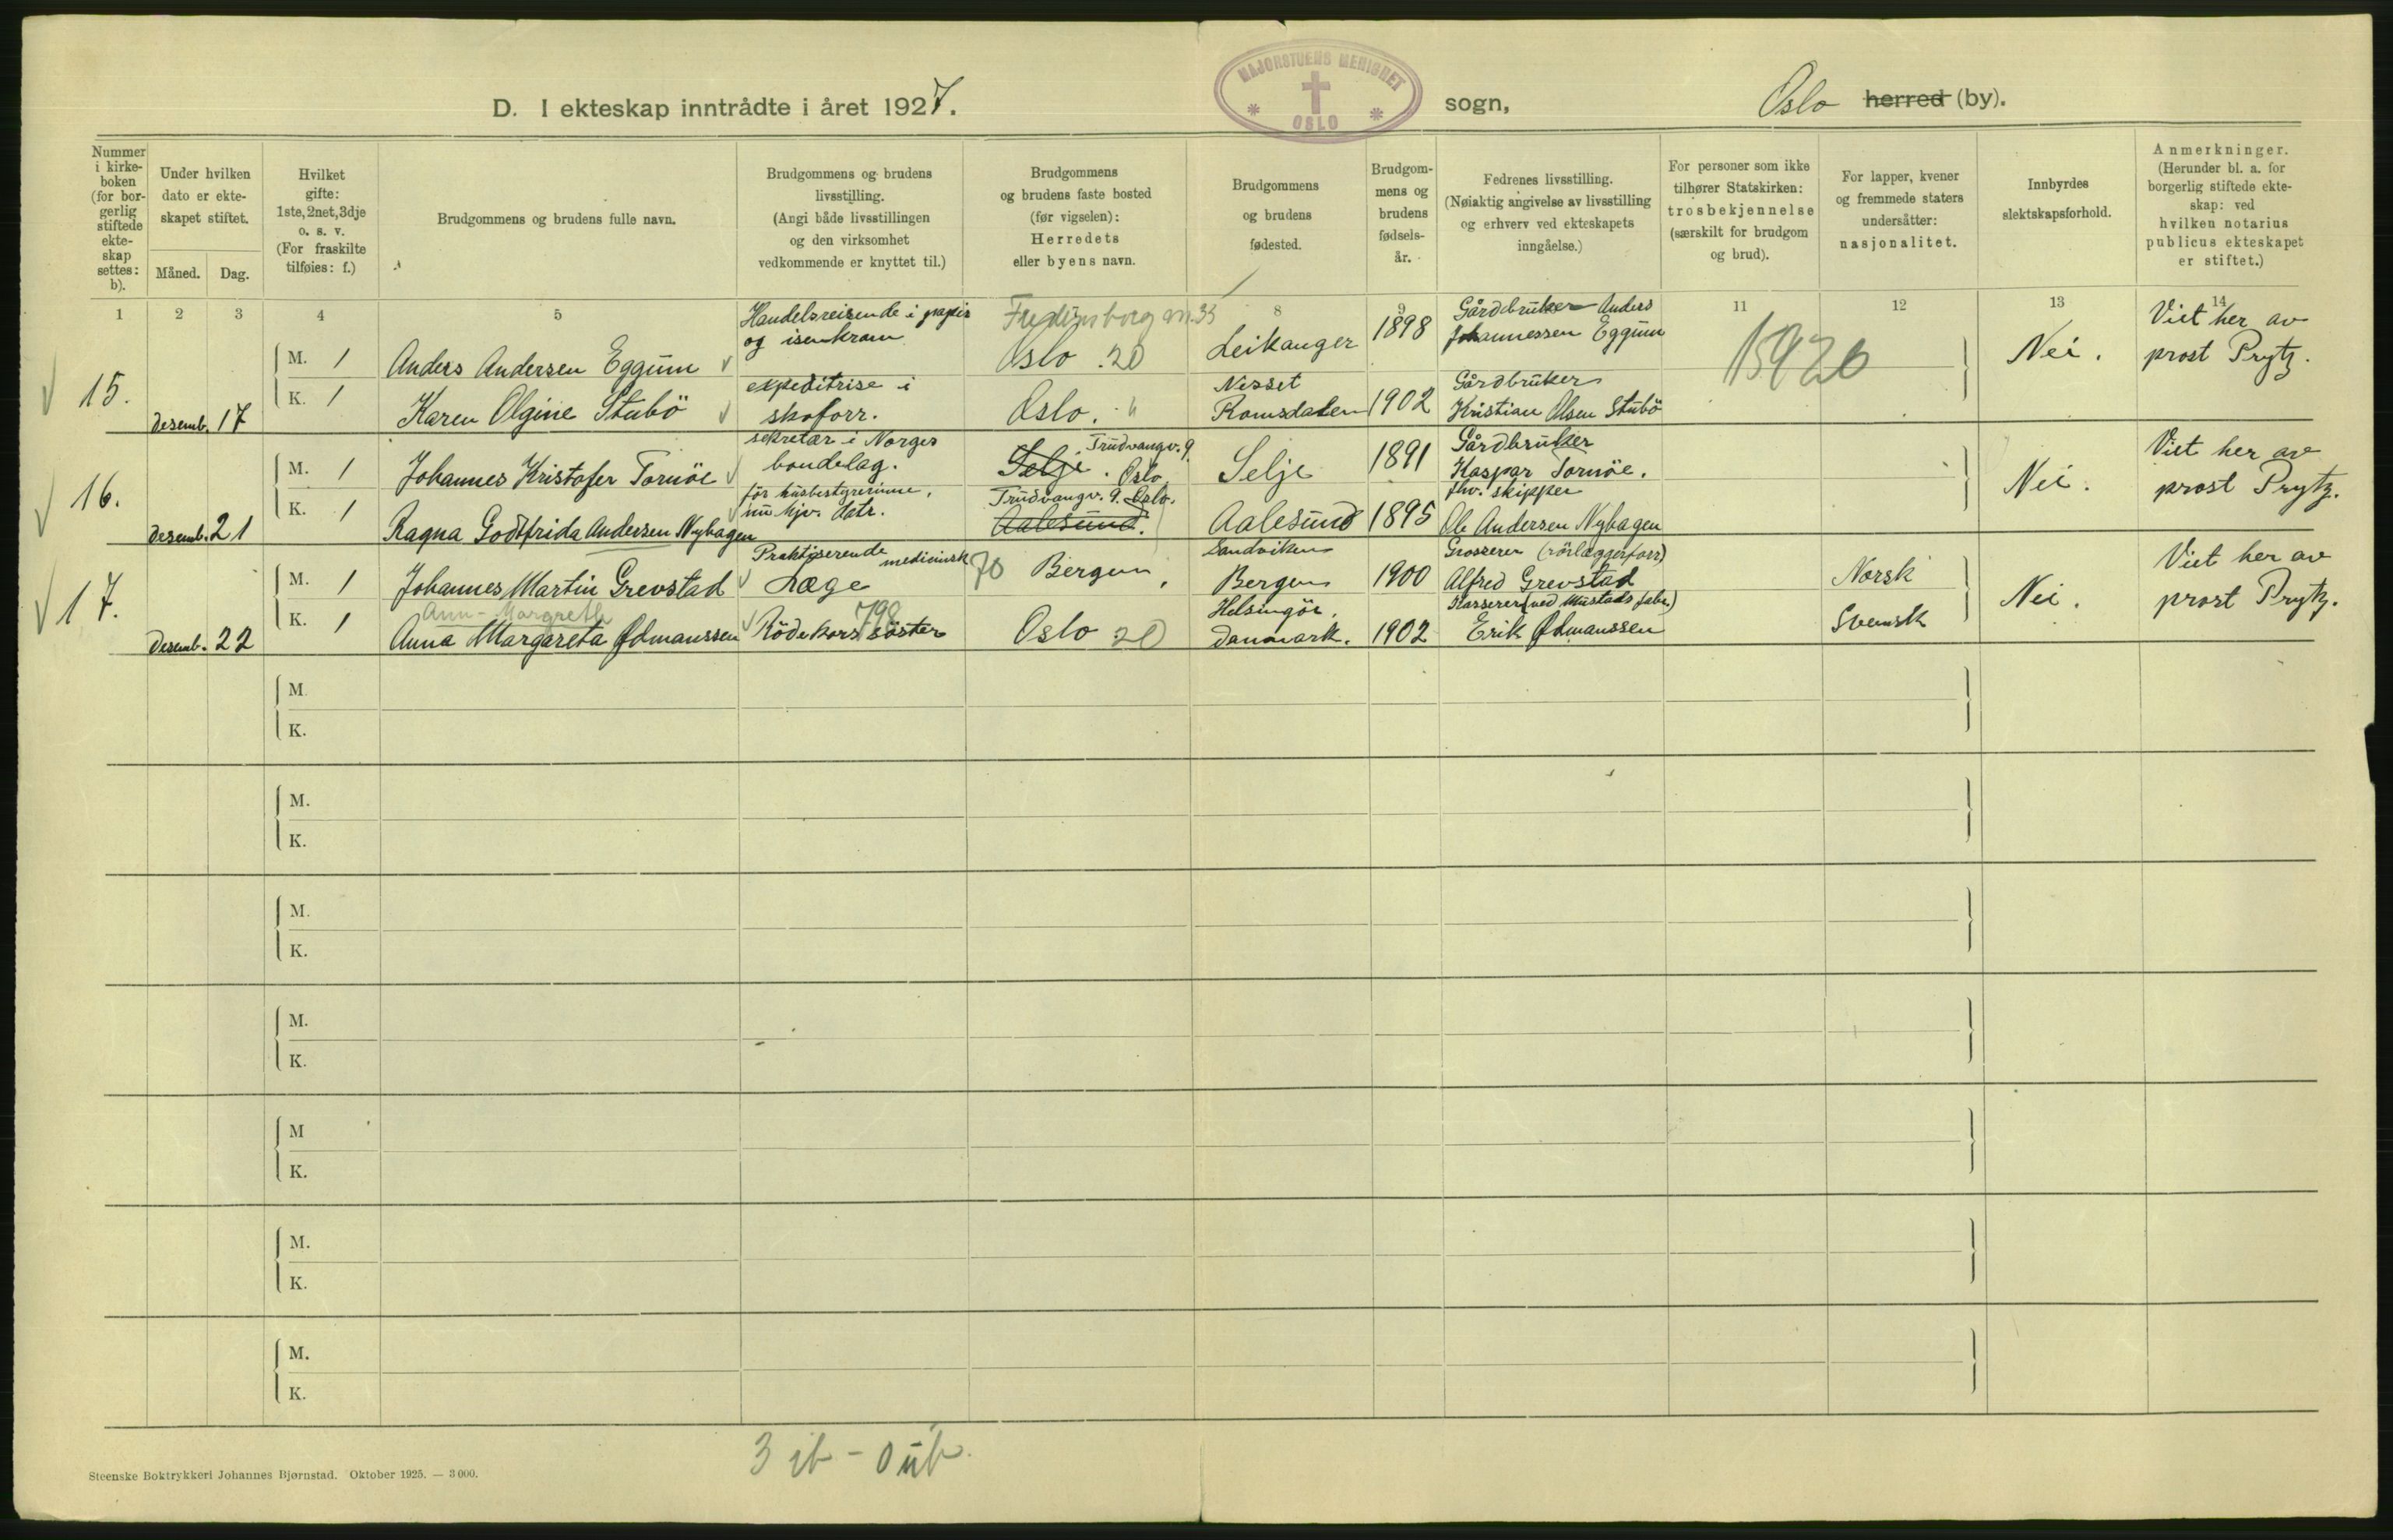 D. I ekteskap inntrådte i året 1927.
MAJORSTUENS MENIGHET
OSLO
sogn,
Oslo herred (by).
Nummer i kirke-boken (for bor-gerlig stiftede ekte-skap settes: b).
Under hvilken dato er ekte-skapet stiftet.
Måned.
Dag.
Hvilket gifte: 1ste, 2net, 3dje o. s. v. (For fraskilte tilføies: f.)
Brudgommens og brudens fulle navn.
Brudgommens og brudens livsstilling. (Angi både livsstillingen og den virksomhet vedkommende er knyttet til.)
Brudgommens og brudens faste bosted (før vigselen): Herredets eller byens navn.
Brudgommens og brudens fødested.
Brudgom-mens og brudens fødsels-år.
Fedrenes livsstilling. (Nøiaktig angivelse av livsstilling og erhverv ved ekteskapets inngåelse.)
For personer som ikke tilhører Statskirken: trosbekjennelse (særskilt for brudgom og brud).
For lapper, kvener og fremmede staters undersåtter: nasjonalitet.
Innbyrdes slektskapsforhold.
Anmerkninger. (Herunder bl. a. for borgerlig stiftede ekte-skap: ved hvilken notarius publicus ekteskapet er stiftet.)
1 2 3 4 5 8 9 11 12 13 14
15.
Desemb. 17
M. 1 Anders Andersen Eggum
Handelsreisende i papir og isenkram
Fredensborgv. 33
Oslo. 20
Leikanger
1898
Gårdbruker Anders Johannessen Eggum
15920
Nei.
Viet her av prost Prytz.
K. 1 Karen Olgine Stubö
expeditrise i skoforr.
Oslo. "
Nesset Romsdalen
1902
Gårdbruker Kristian Olsen Stubö
16.
Desemb. 21
M. 1 Johannes Kristofer Tornöe
sekretær i Norges bondelag.
Selje. Trudvangv. 9. Oslo
Selje
1891
Gårdbruker Kaspar Tornöe.
Nei.
Viet her av prost Prytz.
K. 1 Ragna Godtfrida Andersen Nybagen
för husbestyrerinne, nu hjv. datr.
Trudvangv. 9. Oslo.
Aalesund.
Aalesund
1895
fhv. skipper Ole Andersen Nybagen
17.
Desemb. 22
M. 1 Johannes Martin Grevstad
Praktiserende medicinsk Læge
70 Bergen
Sandviken Bergen
1900
Grosserer (rörlæggerforr) Alfred Grevstad
Norsk
Nei.
Viet her av prost Prytz.
Ann-Margreth
K. 1 Anna Margareta Ødmanssen
Röde kors söster
798
Oslo 20
Helsingör. Danmark.
1902
Kasserer (ved Mustads fabr.) Erik Ødmanssen
Svensk
M.
K.
M.
K.
M.
K.
M.
K.
M
K.
M.
K.
M.
K.
3 ib - 0 ub.
Steenske Boktrykkeri Johannes Bjørnstad. Oktober 1925. — 3000.